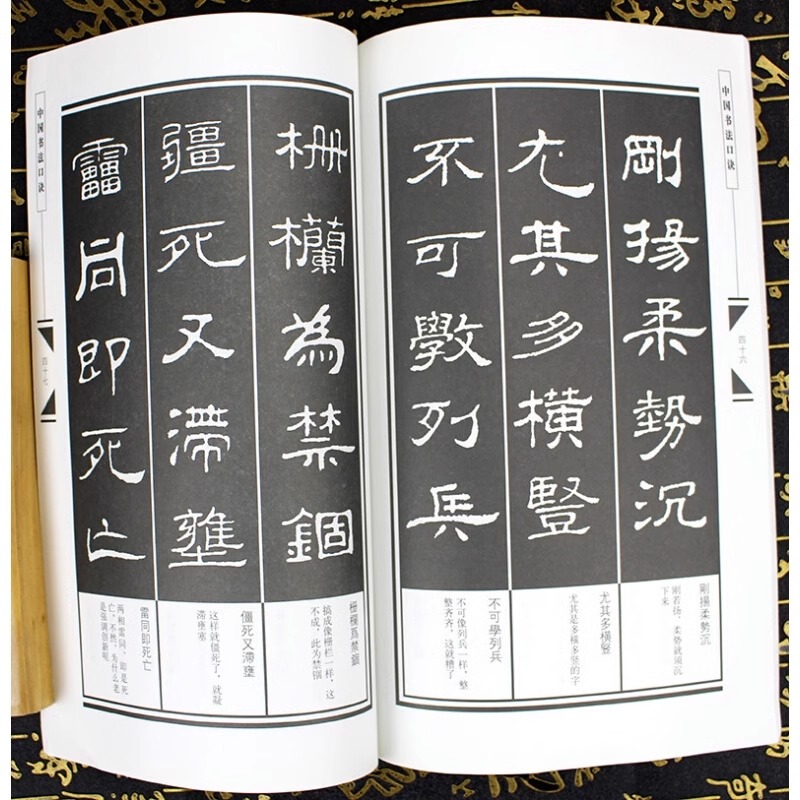 中国书法口诀
四十六
剛揚柔勢沉
尤其多橫豎
不可學列兵
剛揚柔勢沉
刚若扬，柔势就须沉
下来
尤其多橫豎
尤其是多横多竖的字
不可學列兵
不可像列兵一样，整
整齐齐，这就糟了
柵欄為禁錮
殭死又滯壅
雷同即死亡
柵欄爲禁錮
搞成像栅栏一样，这
不成，此为禁锢
僵死又滯壅
这样就僵死了，就凝
滞壅塞
雷同即死亡
两相雷同，即是死
亡，不然，为什么老
是强调创新呢
中国书法口诀
四十七